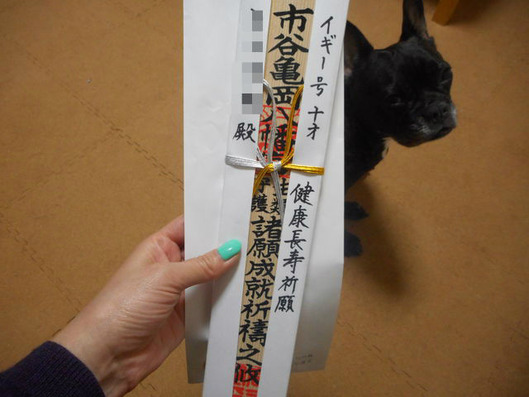 イギー号 十才
健康長寿祈願
市谷亀岡八幡
守護
諸願成就祈禱之攸
殿